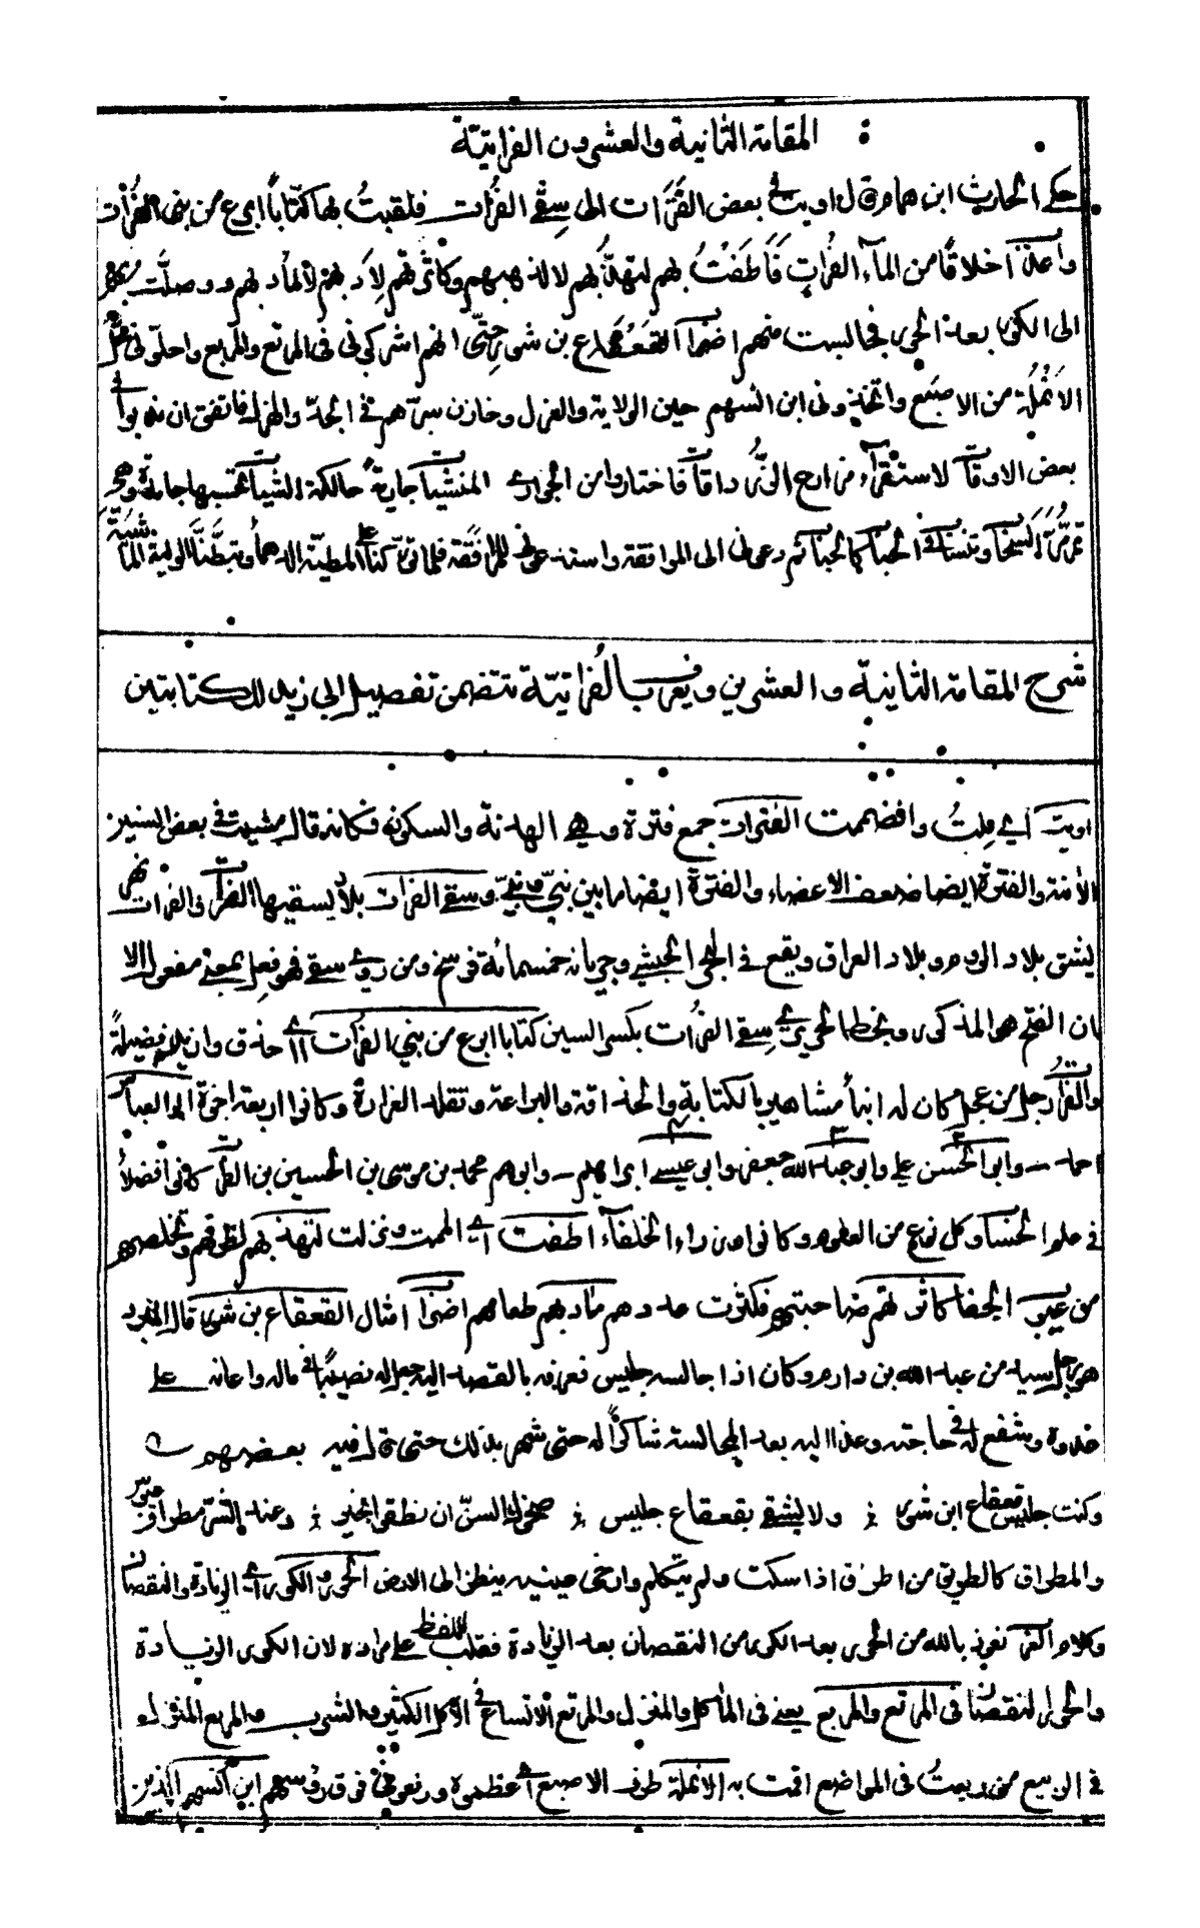 المقامة الثانية والعشرون الفراتيّة
حكى الحارث ابن همام قال اويت في بعض الفترات الى سقي الفرات فلقيت بها كتّاباً ابرع من بني الفرات
واعذب اخلاقًا من المآء الفرات فاطفت بهم لتهذّبهم لا لذهبهم وكاثرتهم لادبهم لا لمآدبهم
الى الكور بعد الحور فجالست منهم اضراب القعقاع بن شور حتّى انهم اشركوني في المرتع والمربع واحلّوني
الانملة من الاصبع واتخذوني ابن انسهم حين الولاية والعزل وخازن سرّهم في الجدّ والهزل فاتفق ان ندبوا
بعض الاوقات لاستقرآء مزارع الرزداقات فاختاروا من الجواري المنشآت جارية حالكة الشيات تحسبها جامدة وهي
تمرّ مرّ السحاب وتنساب في الحباب كالحباب ثم دعوني الى الموافقة واستدعوني للمرافقة فلما تورّكنا على المطيّة الدهماء وتبطّنّا الولية
شرح المقامة الثانية والعشرين ويعرف بالفراتيّة تتضمن تفصيل ابي زيد للكتابتين
اويت اي ملت وافضممت الفترات جمع فترة وهي الهدنة والسكون فكانه قال مشيت في بعض السنين
والفترة ايضا ضعف الاعضاء والفترة ايضا ما بين نبيّ ونبيّ وسقي الفرات بلاد يسقيها الفرات والفرات نهر
يشق بلاد الروم وبلاد العراق ويقع في البحر الحبشي وجريانه خمسمائة فرسخ ومن روى سقي فهو فعل بمعنى مفعول الا
ان الفتح هو المذكور وبخط الحريري سقي الفرات بكسر السين كتابا ابرع من بني الفرات اي احذق وازيد فضيلة
والفرات رجل من عجل كان له ابناء مشاهير بالكتابة والحذاقة والبراعة وتقلد الوزارة وكانوا اربعة اخوة ابو العباس
احمد وابو الحسن علي وابو عبد الله جعفر وابو عيسى ابراهيم وابوهم محمد بن موسى بن الحسين بن الفرات كانوا افضلا
في علم الحساب وكل نوع من العلوم وكانوا وزراء الخلفآء اطفت اي الممت ونزلت لتهذبهم لظرفهم وتخلصهم
من عيوب الجفا كاثرتهم صاحبتهم فكثرت عددهم مآدبهم طعامهم اضراب امثال القعقاع بن شور قال المبرد
هو رجل سيد من عبد الله بن دارم وكان اذا جالسه جليس فعرفه بالقصد اليه جعل له نصيبًا في ماله واعانه على
عدوه وشفع له في حاجته وغدا اليه بعد المجالسة شاكرًا له حتى شهر بذلك حتى قال فيه بعضهم
وكنت جليس قعقاع ابن شور ؛ ولا يشقى بقعقاع جليس ؛ ضحوك السنّ ان نطقوا بخير ؛ وعند الشرّ مطراق
والمطراق كالطريق من اطرق اذا سكت ولم يتكلم وارخى عينيه ينظر الى الارض الحور والكور اي الزيادة والنقصان
وكلام العرب نعوذ بالله من الحور بعد الكور من النقصان بعد الزيادة فقلب اللفظ على مراده لان الكور الزيادة
والحور النقصان في المرتع والمربع يعني في المأكل والمنزل والمرتع الاتساع في الاكل الكثير والشرب والمربع المنزل
في الربيع من ربعت في المواضع اقمت به الانملة طرف الاصبع اي عظموه ورفعوني فوق رؤسهم ابن انسهم الذين